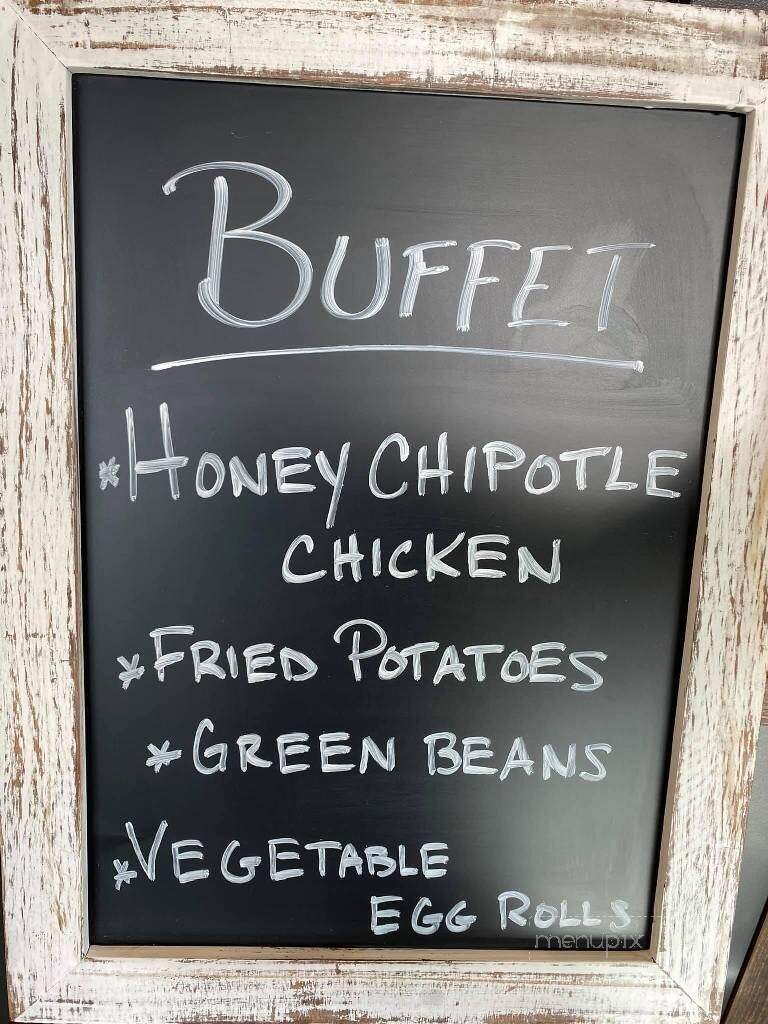 BUFFET
*HONEY CHIPOTLE
CHICKEN
*FRIED POTATOES
*GREEN BEANS
*VEGETABLE
EGG ROLLS
menupix